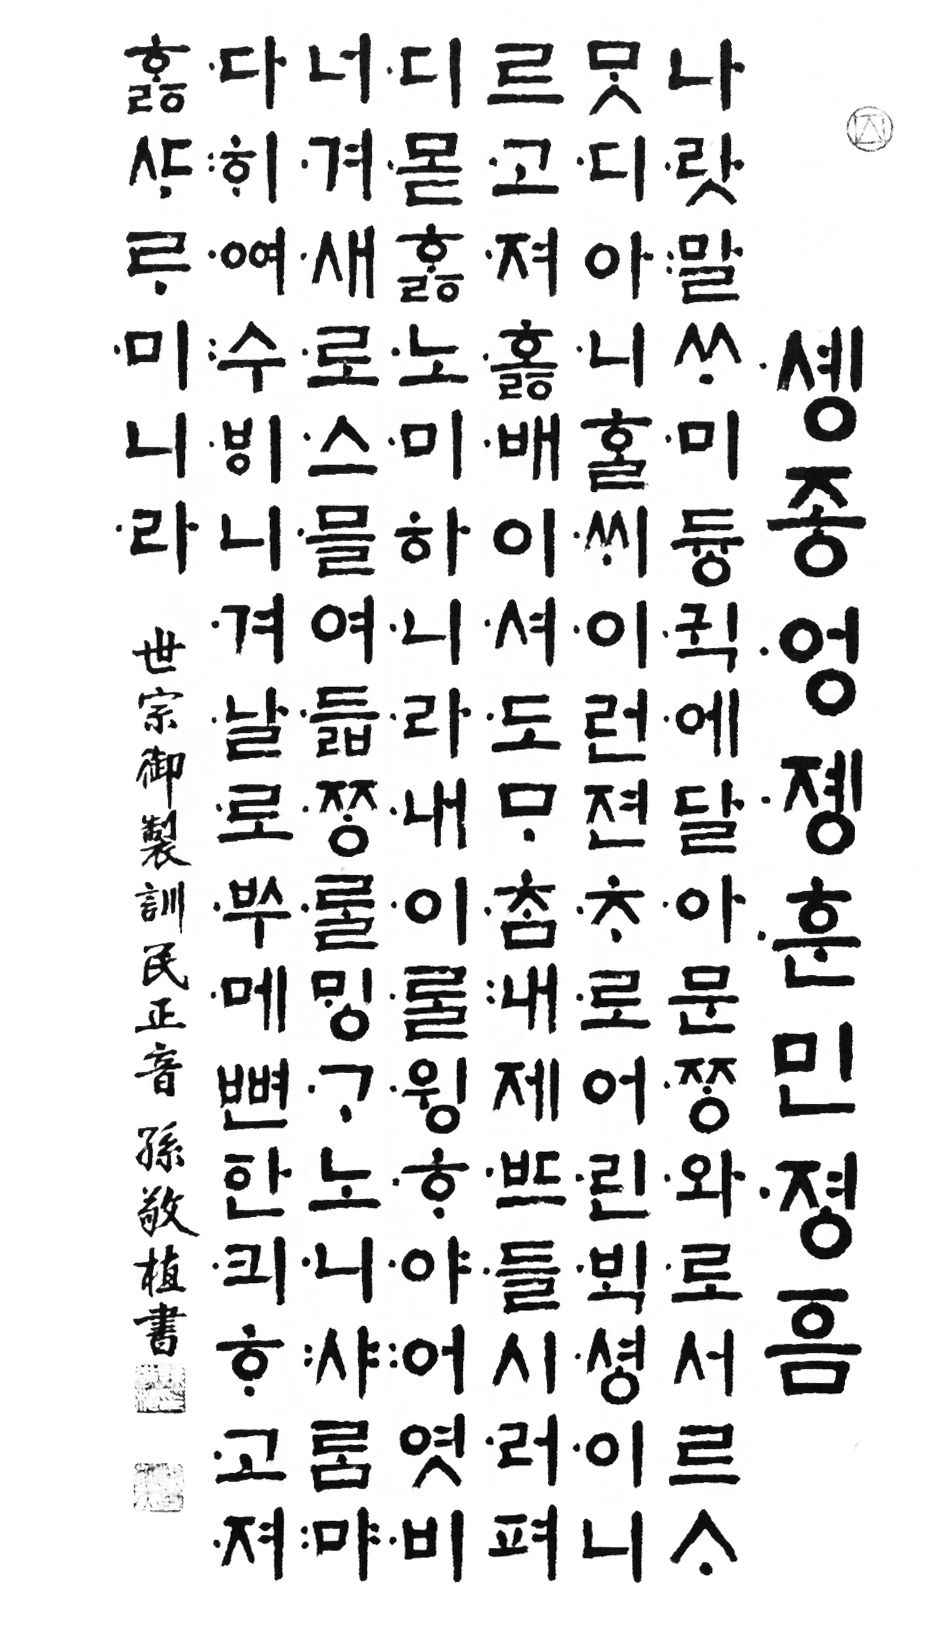 ·솅종·엉·졩·훈민·졍흠
나·랏:말ᄊᆞ·미듕·귁·에달·아문·ᄍᆞᆼ·와·로서르ᄉᆞ
ᄆᆞᆺ·디아·니ᄒᆞᆯ·ᄊᆡ·이런젼·ᄎᆞ·로어·린·ᄇᆡᆨ·셩·이니
르·고·져·ᄒᆞᇙ·배이·셔·도ᄆᆞ·ᄎᆞᆷ:내제·ᄠᅳ·들시·러펴
·디·몯ᄒᆞᇙ·노·미하·니·라·내·이·ᄅᆞᆯ·윙·ᄒᆞ·야:어엿·비
너·겨·새·로·스·믈여·듧·ᄍᆞᆼ·ᄅᆞᆯᄆᆡᇰ·ᄀᆞ노·니:사ᄅᆞᆷ:마
·다:ᄒᆡ·ᅇᅧ:수·ᄫᅵ니·겨·날·로·ᄡᅮ·메뼌한·킈ᄒᆞ·고·져
ᄒᆞᇙᄯᆞᄅᆞ·미니·라
世宗御製訓民正音 孫敬植書